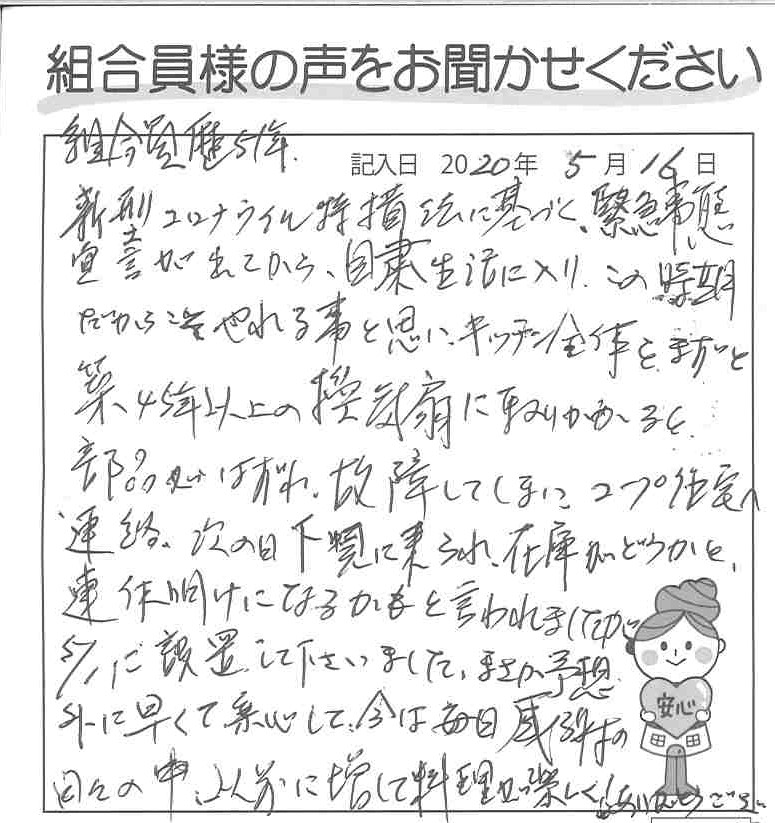 組合員様の声をお聞かせください
組合員歴51年
記入日 2020年 5月16日
新型コロナウイルス特措法に基づく、緊急事態
宣言が出てから、自粛生活に入り、この時期
だからこそやれる事と思い、キッチン全体を、まずと
築、45年以上の換気扇に取りかかると、
部品がはずれ、故障してしまい、コープ住宅へ
連絡、次の日下見に来られ、在庫がどうかと、
連休明けになるかもと言われましたが
5/1に設置して下さいました、まさか予想
外に早くて安心して、今は毎日感謝の
日々の中、以前に増して料理が楽しく!ありがとうござい
安心